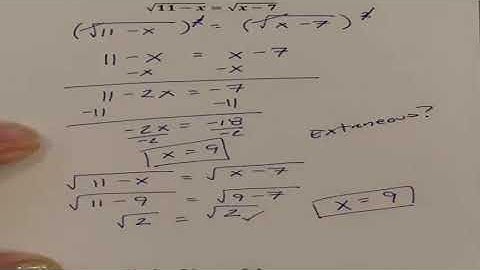 √11 − x = √x − 7
(√11 − x)² = (√x − 7)²
11 − x = x − 7
−x −x
11 − 2x = −7
−11 −11
−2x = −18
−2 −2
Extraneous?
x = 9
√11 − x = √x − 7
√11 − 9 = √9 − 7
√2 = √2 ✓
x = 9